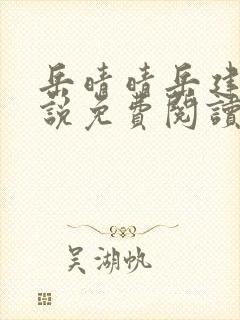 岳晴晴岳建
說免費閱讀
吴湖帆